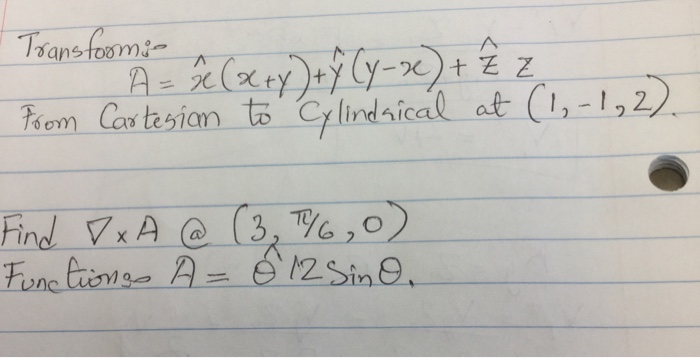 Transform:-
A = x̂(x+y)+ŷ(y-x)+ ẑ z
From Cartesian to Cylindrical at (1,-1,2).
Find ∇×A @ (3, π/6, 0)
Function:- A = θ̂ 12 Sinθ.